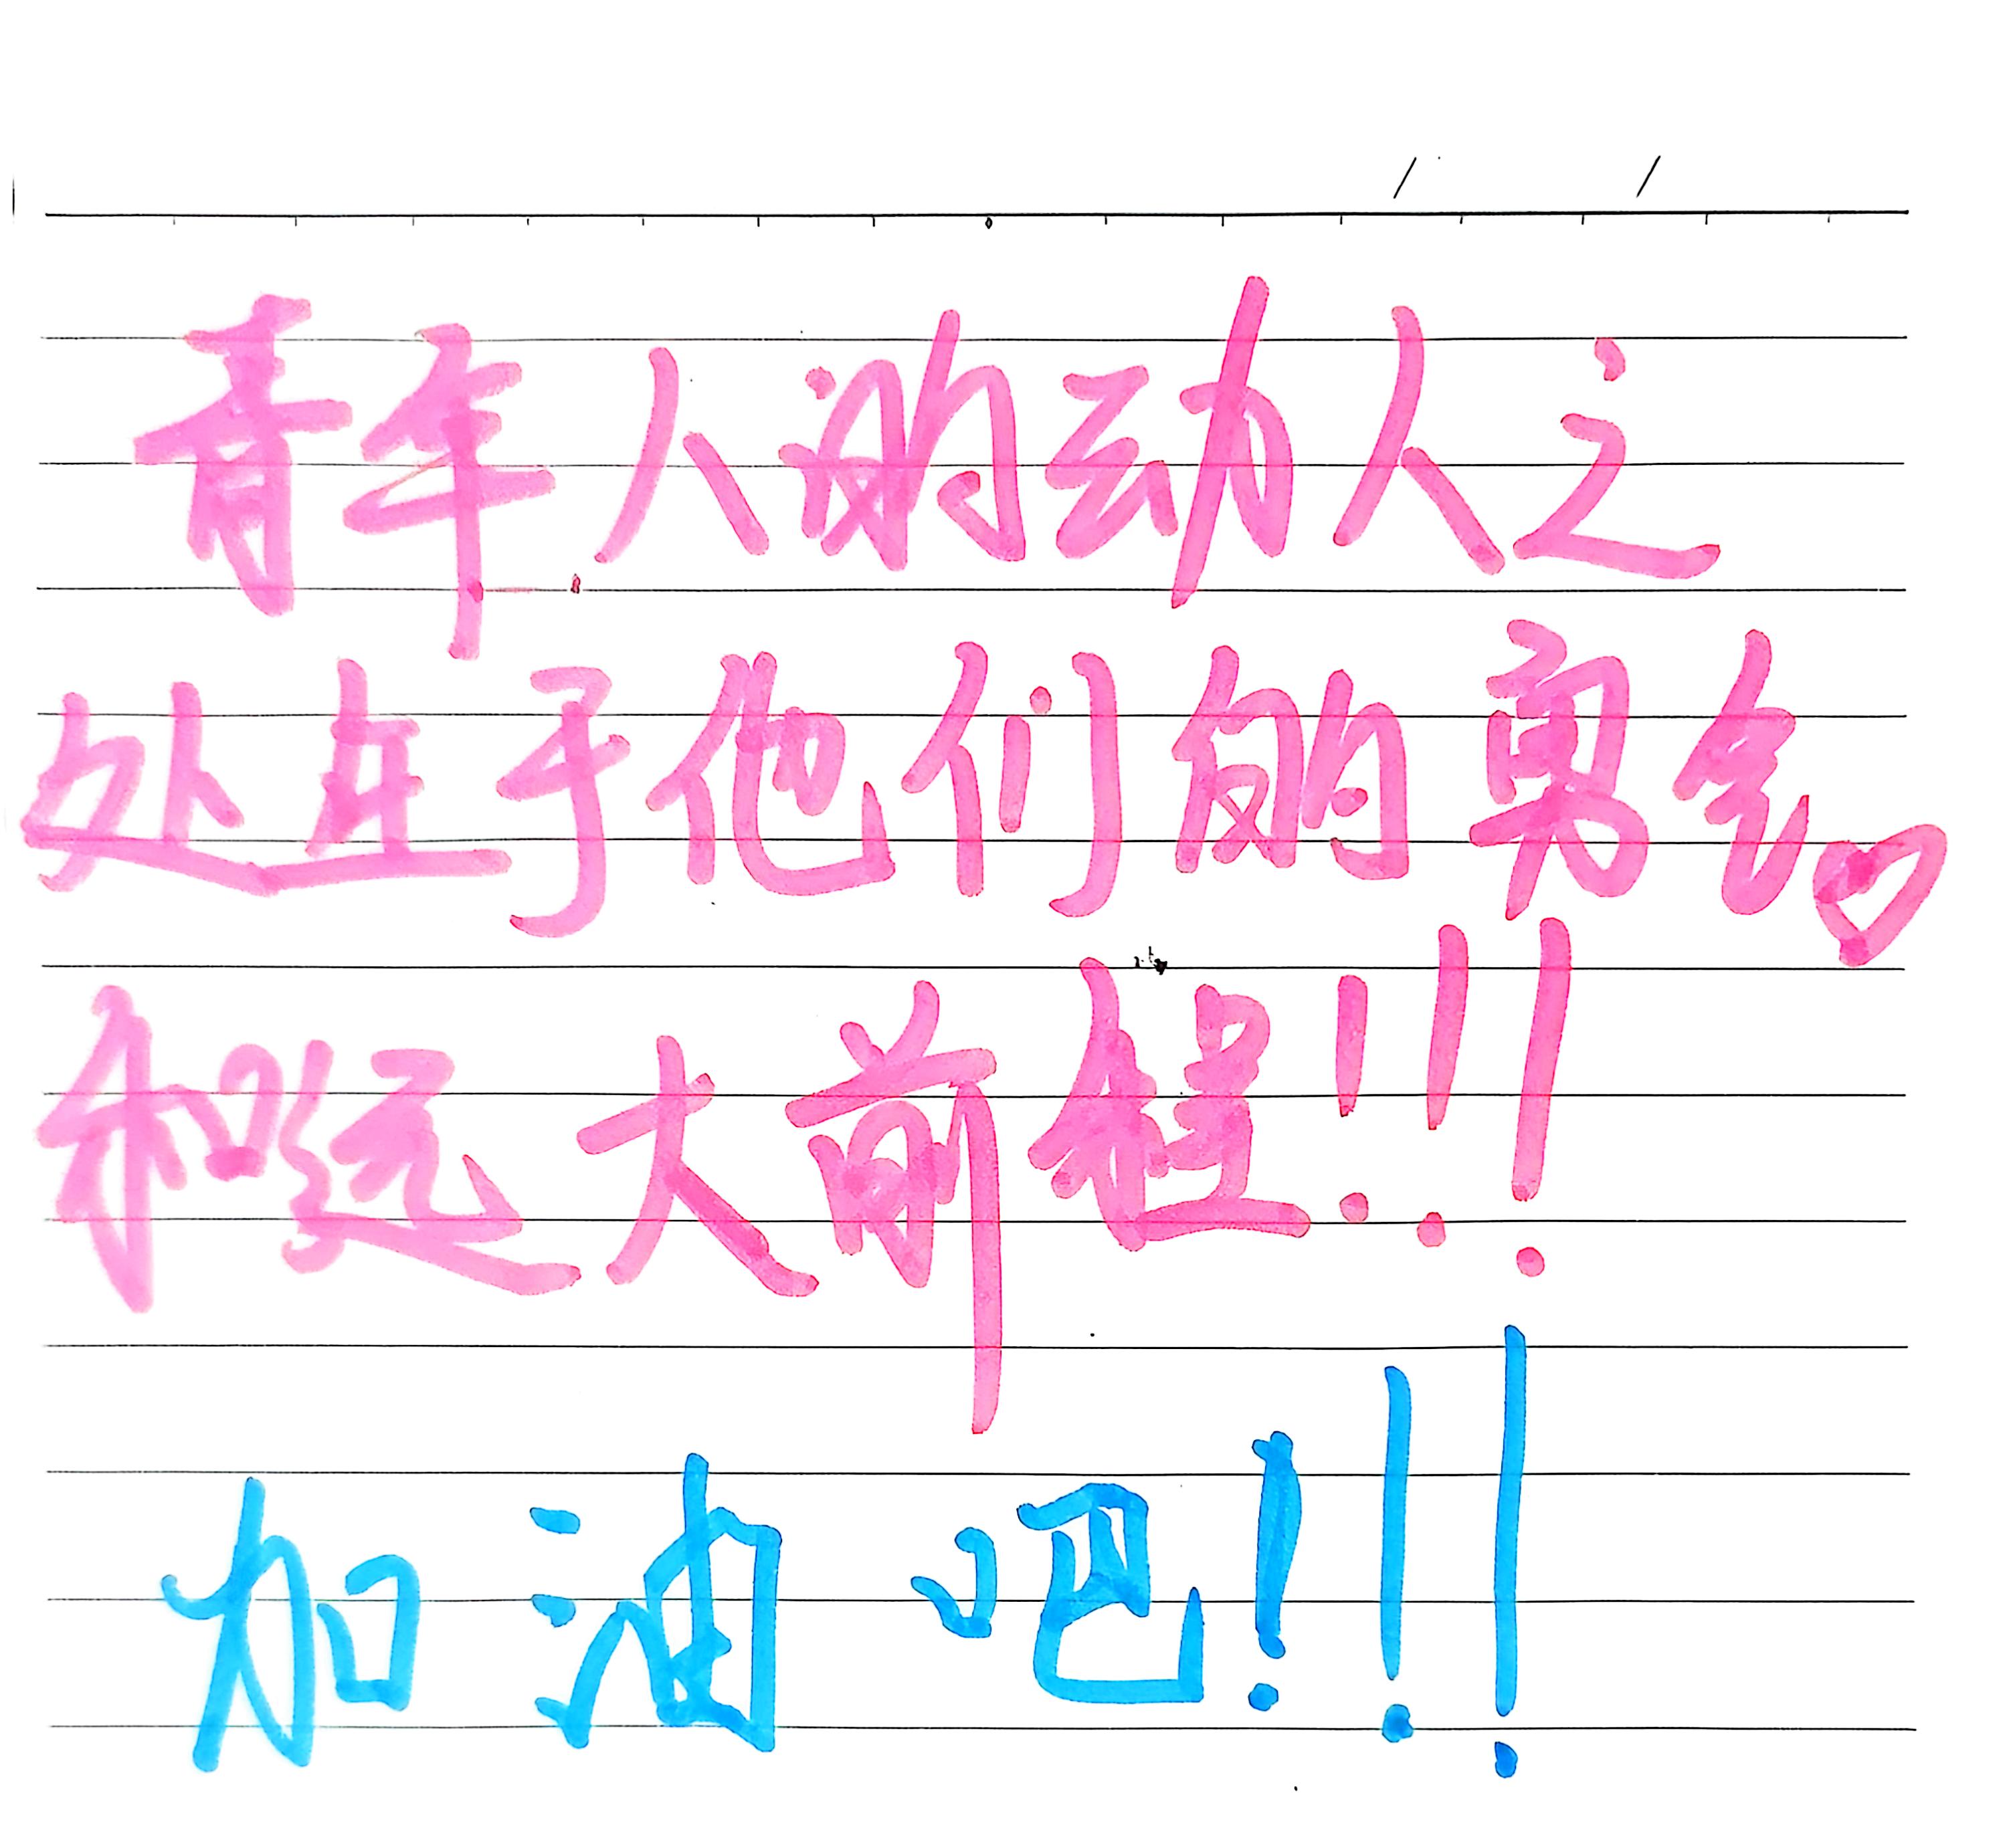 青年人的动人之
处在于他们的勇气。
和远大前程!!!
加油吧!!!